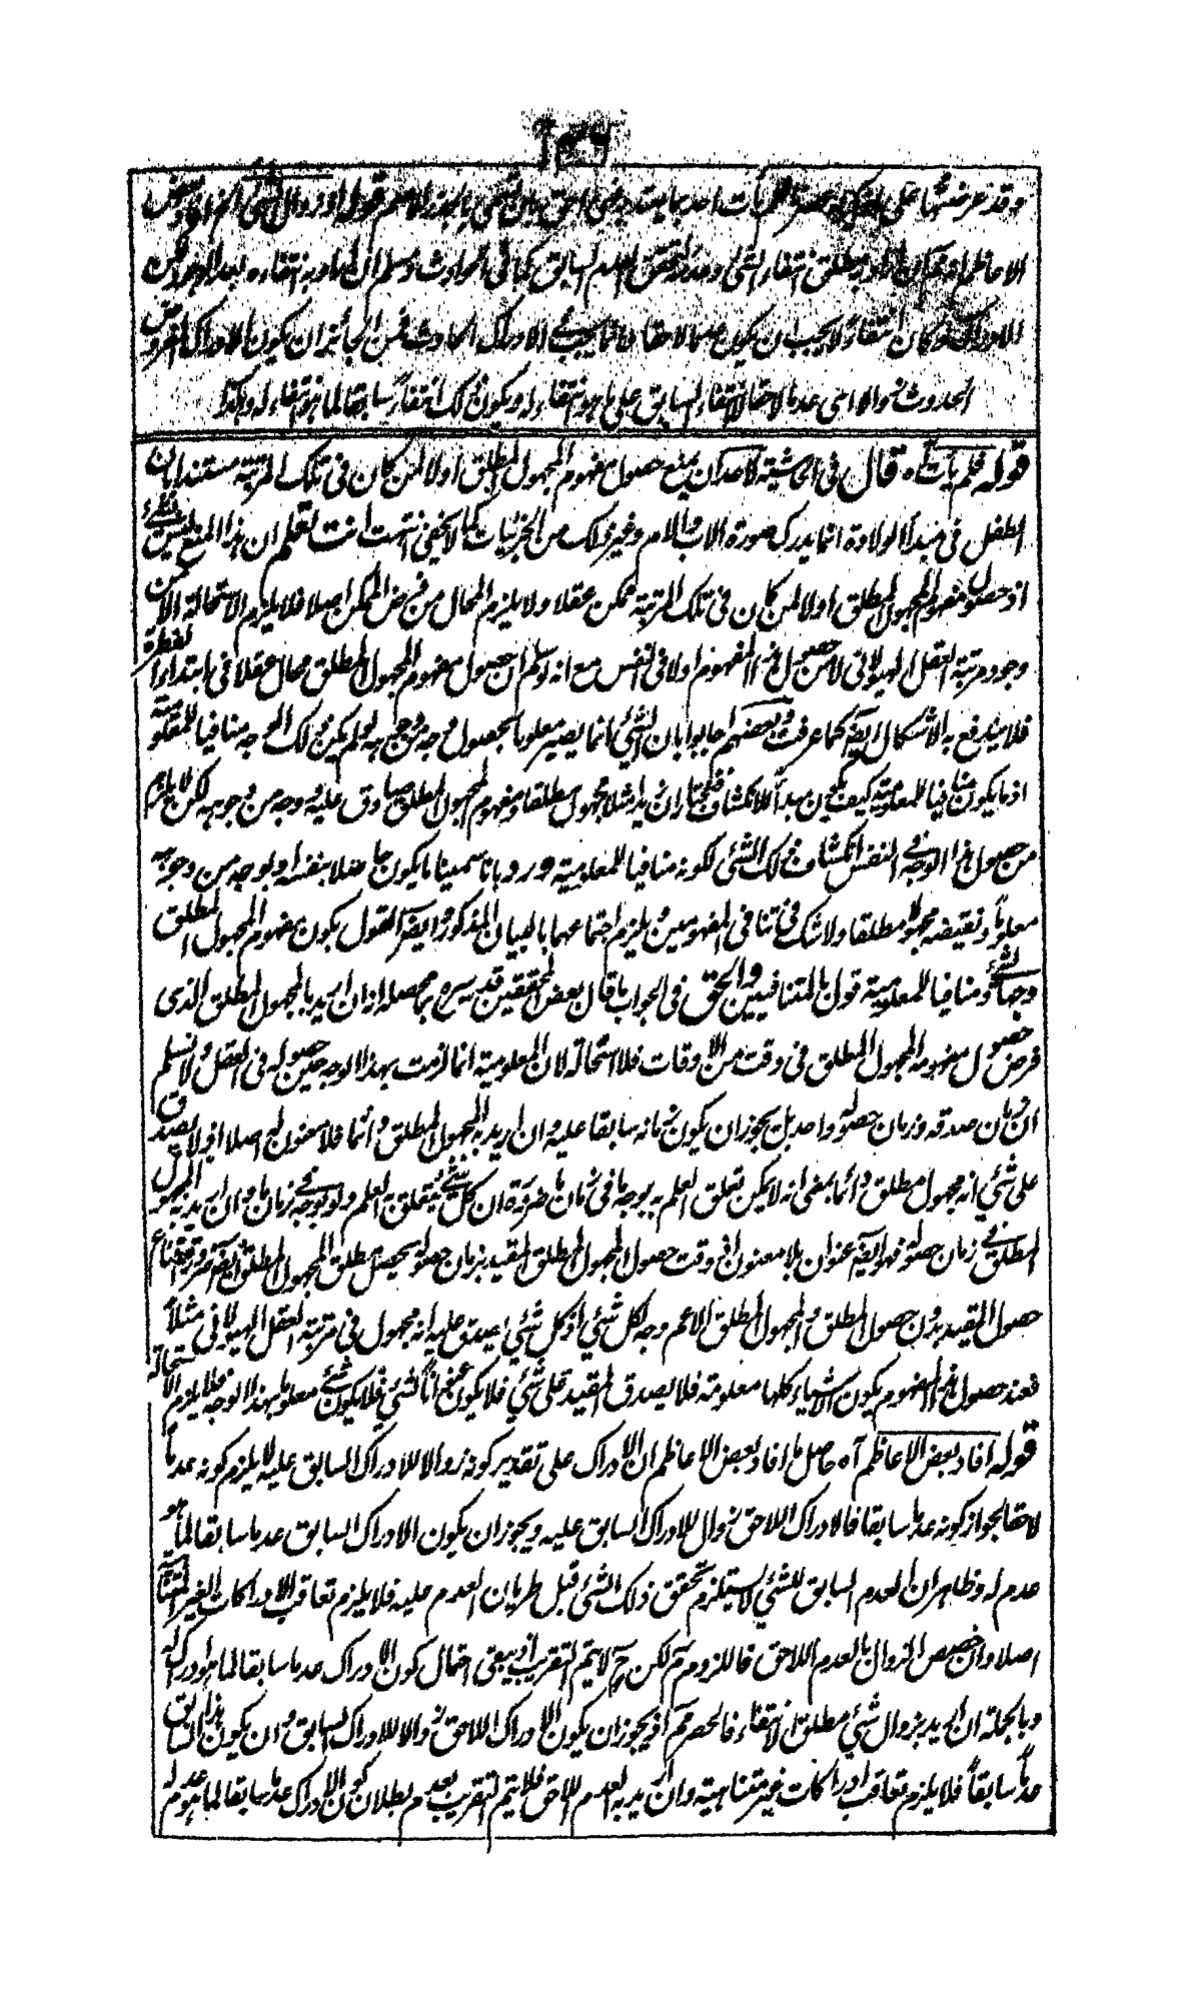 وقد عرضتها على
الاعاظم انتفاء الشئ العدم السابق كما فى الحوادث وسلم ان المراد به انتفاءه بعد الوجود
الادراك لو كان انتفاءً لا يجب ان يكون عدما لاحقا فانما يجب الادراك الحادث فمن الجائز ان يكون الادراك
الحدوث زوالا اعنى عدما لاحقا لانتفاء السابق على ما هو انتفاء له ويكون ذلك انتفاءً سابقا لما هو انتفاء له وهكذا
قوله فلم يأت آه قال فى الحاشية لاحد ان يمنع حصول مفهوم المجهول المطلق اولا لمن كان فى تلك المرتبة مستندا بان
الطفل فى مبدأ الولادة انما يدرك صورة الاب والام وغير ذلك من الجزئيات كما لا يخفى انتهت انت تعلم ان هذا المنع ليس بشئ
اذ حصول مفهوم المجهول المطلق اولا لمن كان فى تلك المرتبة ممكن عقلا ولا يلزم المحال من فرض الممكن اصلا فلا يلزم الاستحالة الا من
وجود مرتبة العقل الهيولانى لا من حصول هذا المفهوم اولا فى النفس مع انه لو سلم ان حصول مفهوم المجهول المطلق محال عقلا فى ابتداء الفطرة
فلا يندفع به الاشكال ايضا كما عرفت وبعضهم اجابوا بان الشئ انما يصير معلوما بحصول وجه من وجوهه لو لم يكن ذلك الوجه منافيا للمعلومية
اذ ما يكون منافيا للمعلومية كيف يكون مبدأ للانكشاف فنختار ان زيدا مثلا مجهول مطلقا ومفهوم المجهول المطلق صادق عليه ووجه من وجوهه لكن لا يلزم
من حصول هذا الوجه فى النفس انكشاف ذلك الشئ لكونه منافيا للمعلومية ورد بانا سمينا ما يكون حاصلا بنفسه او بوجه من وجوهه
معلوما ونقيضه مجهولا مطلقا ولا شك فى تنافى المفهومين ويلزم اجتماعهما بالبيان المذكور وايضا القول بكون مفهوم المجهول المطلق
وجها للشئ ومنافيا للمعلومية قول بالمتنافيين والحق فى الجواب ما قال بعض المحققين قدس سره بما محصله انه ان اريد بالمجهول المطلق الذى
فرض حصول مفهومه المجهول المطلق فى وقت من الاوقات فلا استحالة لان المعلومية انما لزمت بهذا الوجه حين حصوله فى العقل ولا نسلم
ان زمان صدقه وزمان حصوله واحد بل يجوز ان يكون زمانه سابقا عليه وان اريد به المجهول المطلق دائما فلا معنون له اصلا اذ لا يصدق
على شئ انه مجهول مطلق دائما بمعنى انه لا يمكن تعلق العلم به بوجه ما فى زمان ما ضرورة ان كل شئ يتعلق به العلم ولو بوجه فى زمان ما وان اريد به المجهول
المطلق فى زمان حصوله فهو ايضا عنوان بلا معنون اذ فى وقت حصول المجهول المطلق المقيد بزمان حصوله يحصل مطلق المجهول المطلق ايضا ضرورة امتناع
حصول المقيد بدون حصول المطلق والمجهول المطلق الاعم وجه لكل شئ اذ كل شئ يصدق عليه انه مجهول فى مرتبة العقل الهيولانى مثلا
فعند حصول هذا المفهوم يكون الاشياء كلها معلومة فلا يصدق المقيد على شئ فلا يكون عنوانا لشئ فلا يكون شئ معلوما بهذا الوجه فلا يلزم الاستحالة
قوله افاد بعض الاعاظم آه حاصل ما افاد بعض الاعاظم ان الادراك على تقدير كونه زوالا للادراك السابق عليه لا يلزم كونه عدما
لاحقا لجواز كونه عدما سابقا فالادراك اللاحق زوال للادراك السابق عليه ويجوز ان يكون الادراك السابق عدما سابقا لما هو
عدم له وظاهر ان العدم السابق للشئ لا يستلزم تحقق ذلك الشئ قبل طريان العدم عليه فلا يلزم تعاقب الادراكات الغير المتناهية
اصلا وان خصص الزوال بالعدم اللاحق فاللزوم تم لكن ح لا يتم التقريب اذ يبقى احتمال كون الادراك عدما سابقا لما هو ادراك له
وبالجملة ان اريد بزوال شئ مطلق الانتفاء فالحصر تم اذ يجوز ان يكون الادراك اللاحق زوالا للادراك السابق وان يكون هذا السابق
عدما سابقا فلا يلزم تعاقب ادراكات غير متناهية وان اريد به العدم اللاحق فلا يتم التقريب بعدم بطلان كون الادراك عدما سابقا لما هو عدم له